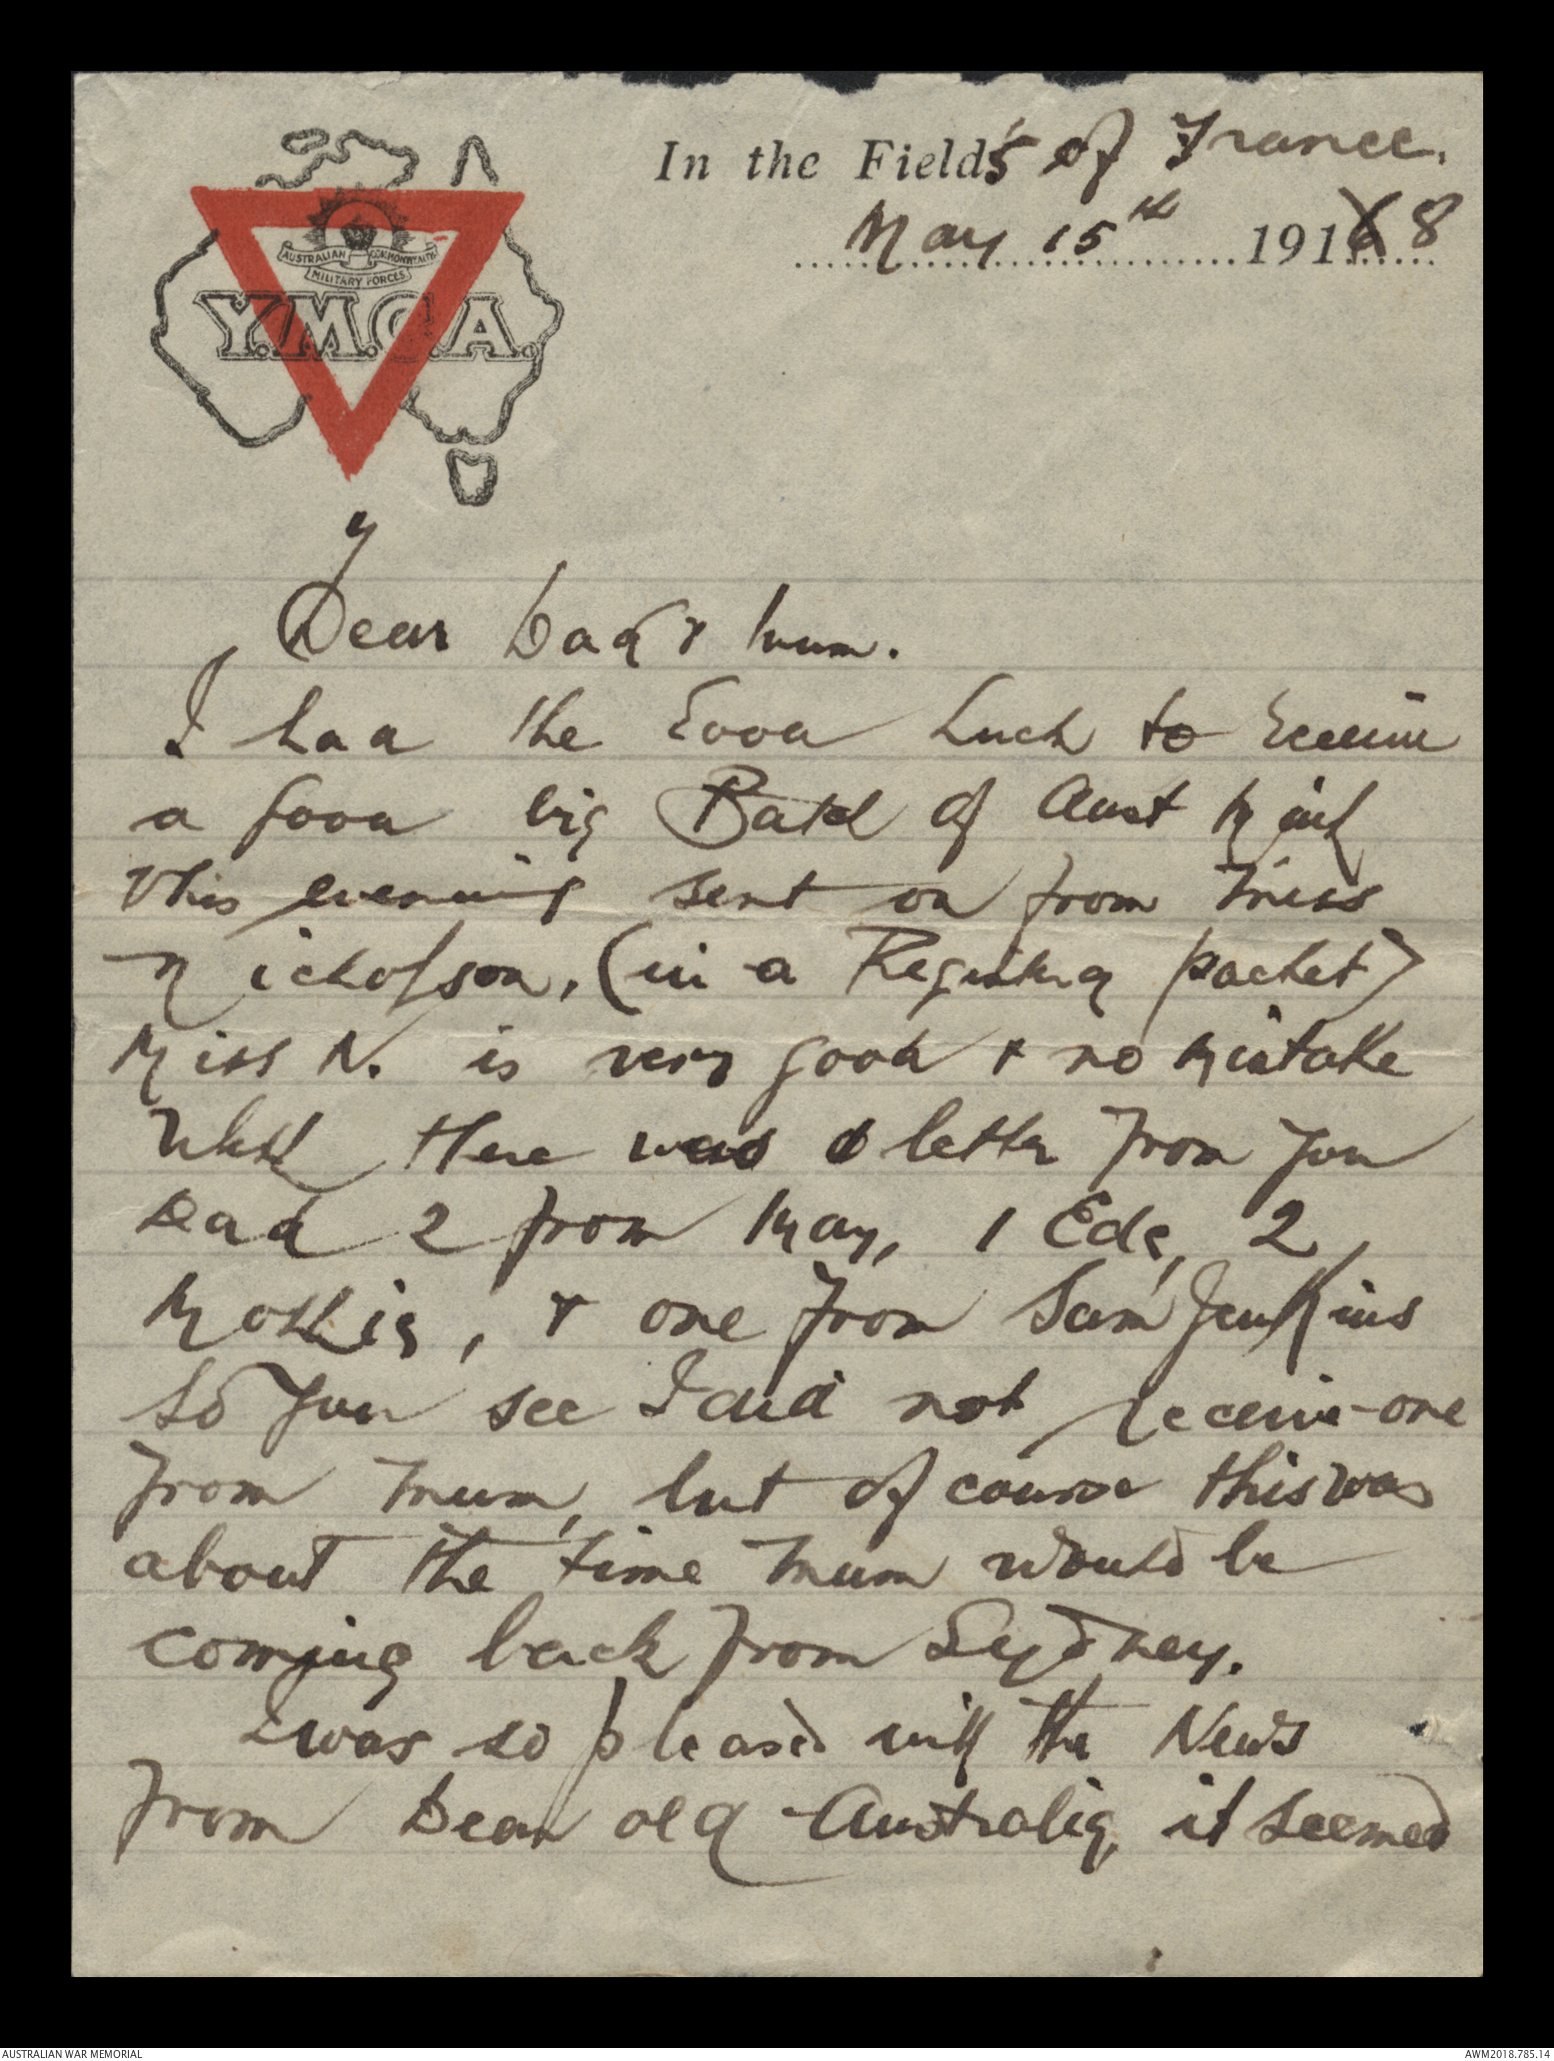 In the Fields of France.
May 15th 1918
AUSTRALIAN COMMONWEALTH
MILITARY FORCES
Y.M.C.A.
Dear Dad & Mum.
I had the Good Luck to Receive
a good big Batch of Aust Mail
this evening sent on from Miss
Nicholson, (in a Registerd packet)
Miss N. is very good & no mistake
Well there was letter from you
Dad 2 from May, 1 Ede, 2
Mollie, & one from Sam Jenkins
So you see I did not receive one
from Mum, but of course this was
about the time Mum would be
coming back from Sydney.
I was so pleased with the News
from Dear old Australia, it seemed
AUSTRALIAN WAR MEMORIAL
AWM2018.785.14